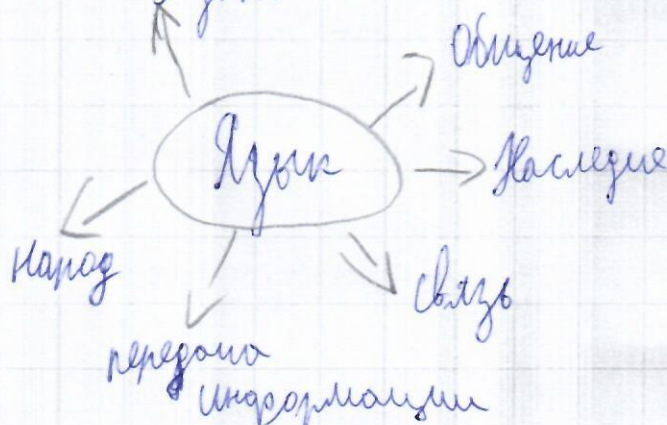 Общение
Язык
Наследие
народ
связь
передача
информации